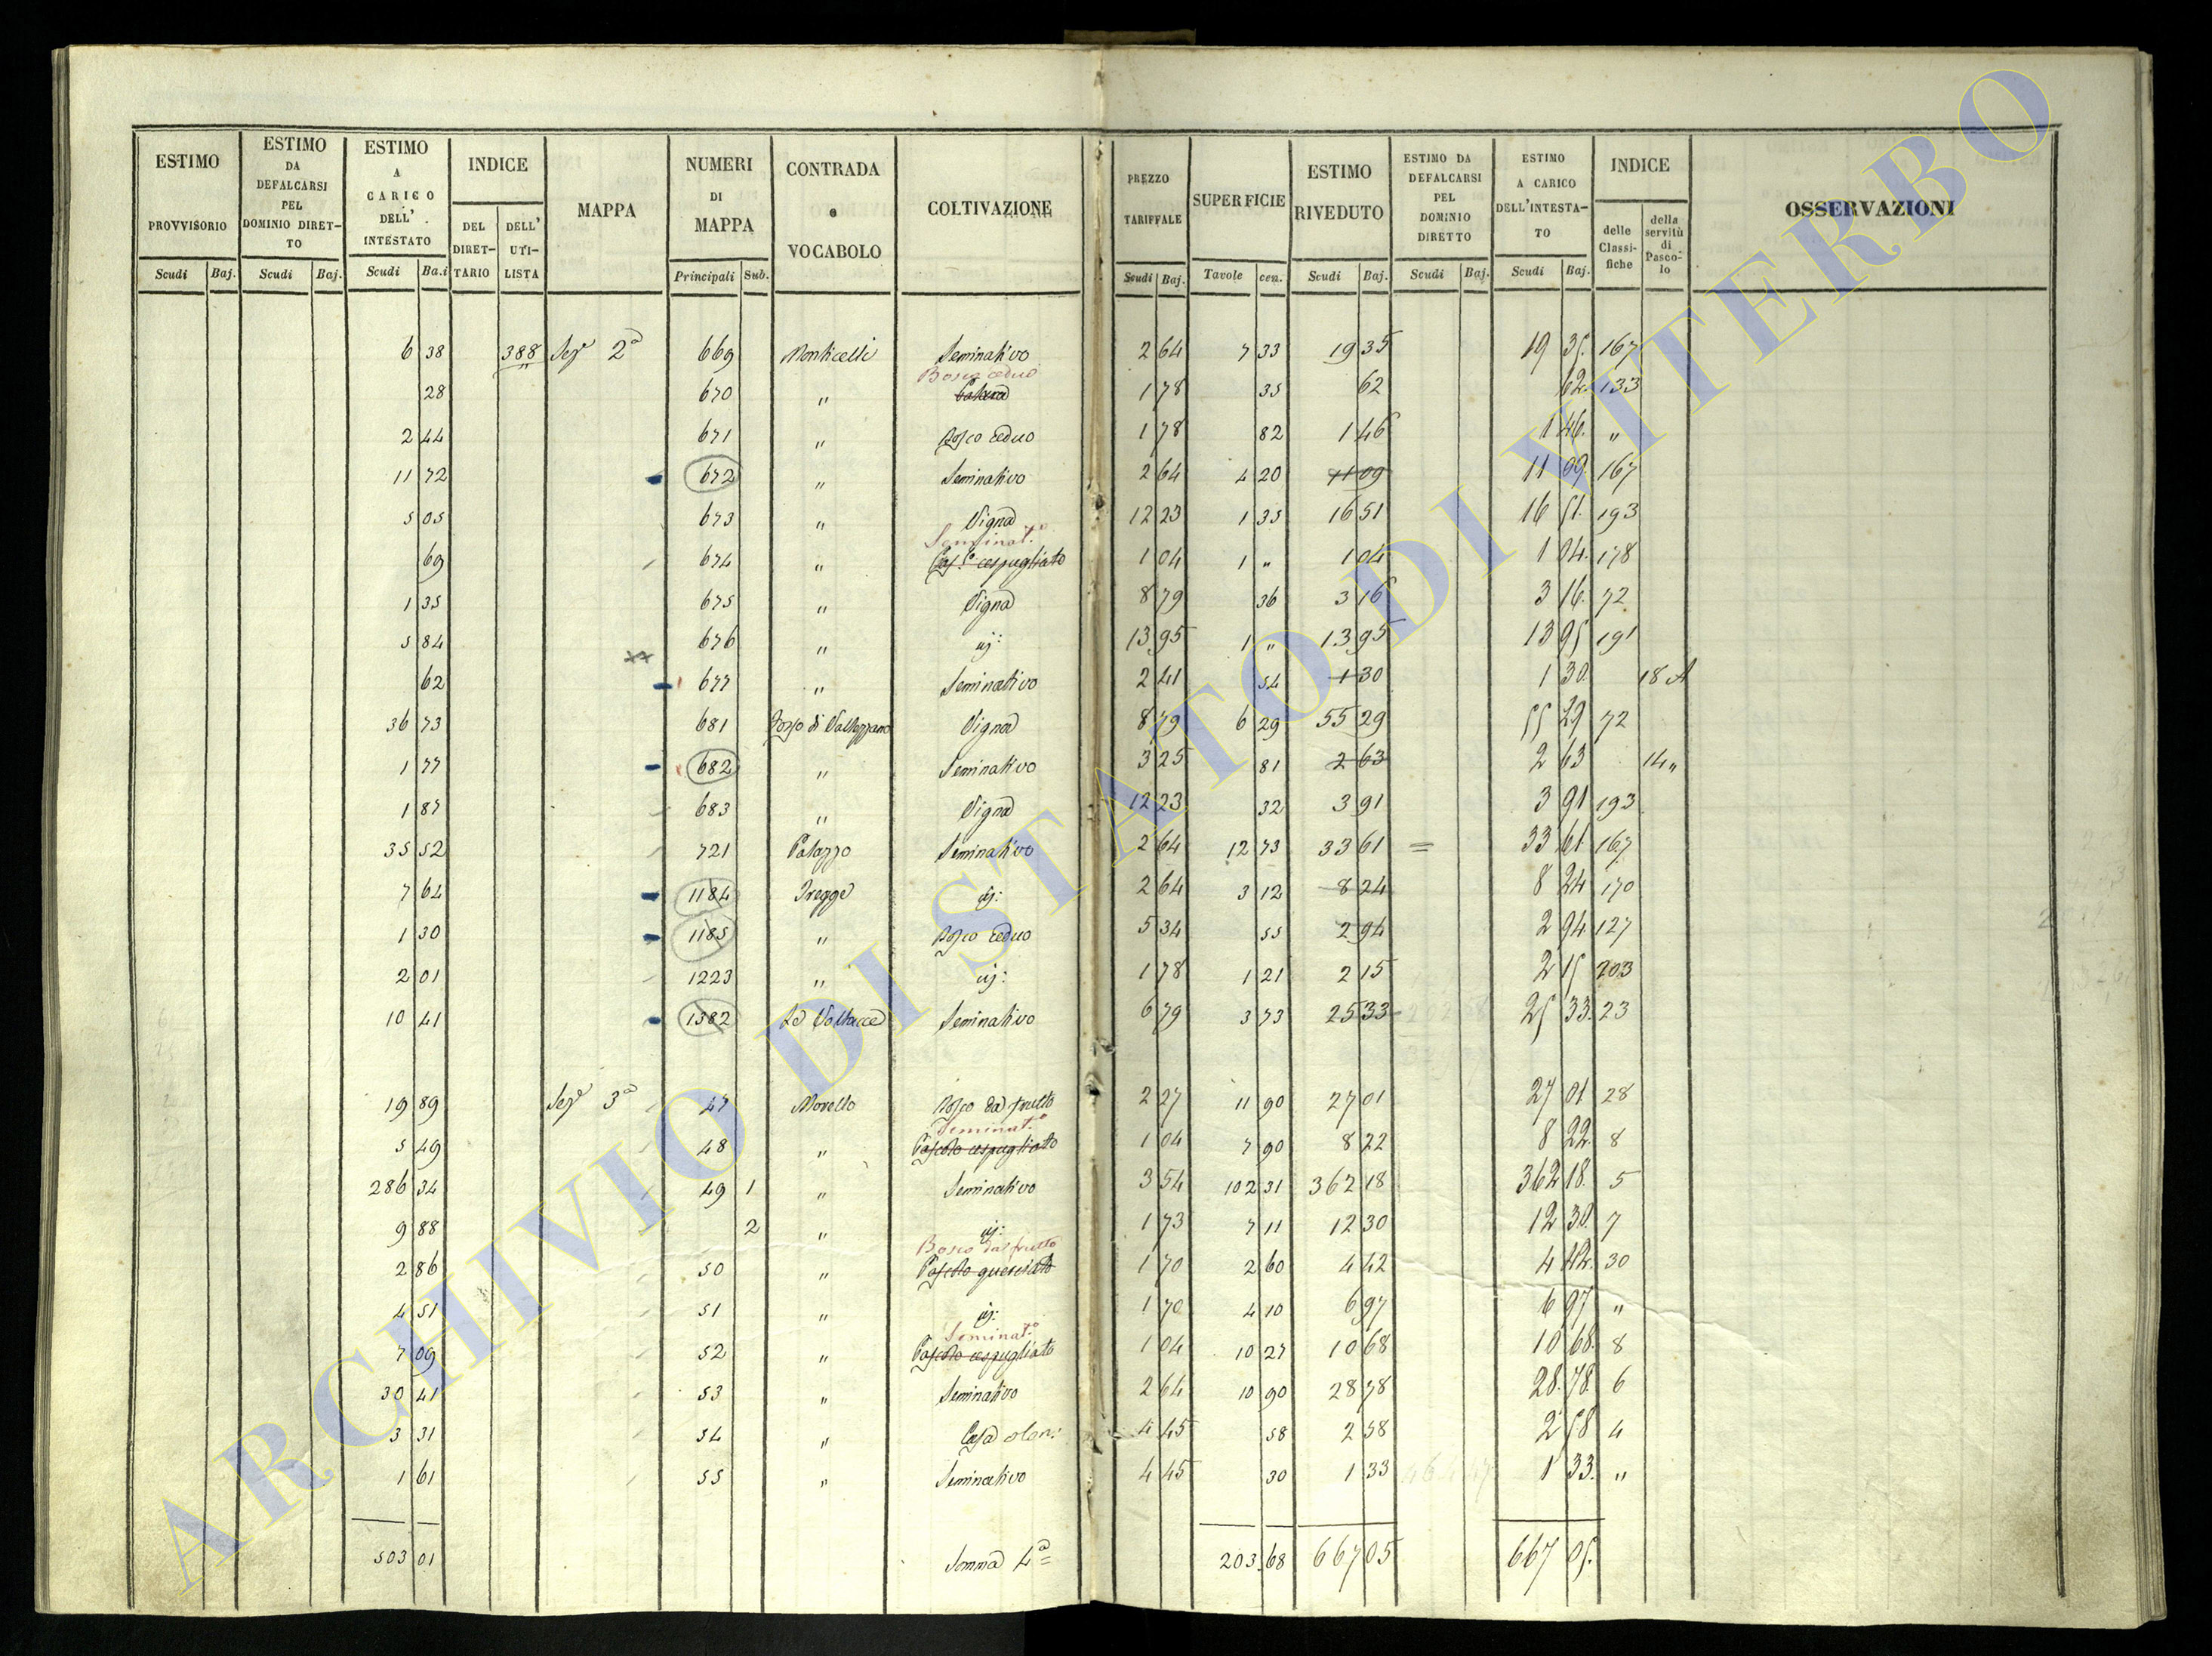 ESTIMO PROVVISORIO Scudi Baj.
ESTIMO DA DEFALCARSI PEL DOMINIO DIRETTO Scudi Baj.
ESTIMO A CARICO DELL' INTESTATO Scudi Ba.i
INDICE DEL DIRETTARIO DELL' UTILISTA
MAPPA
NUMERI DI MAPPA Principali Sub.
CONTRADA e VOCABOLO
COLTIVAZIONE
PREZZO TARIFFALE Scudi Baj.
SUPERFICIE Tavole cen.
ESTIMO RIVEDUTO Scudi Baj.
ESTIMO DA DEFALCARSI PEL DOMINIO DIRETTO Scudi Baj.
ESTIMO A CARICO DELL'INTESTATO Scudi Baj.
INDICE delle Classifiche della servitù di Pascolo
OSSERVAZIONI
6 38 388 Sez.e 2a 669 Monticelli Seminativo 2 64 7 33 19 35 19 35. 167
Bosco ceduo
28 670 " 1 78 35 62 62. 133
2 44 671 " Bosco Ceduo 1 78 82 1 46 1 46. "
11 72 672 " Seminativo 2 64 4 20 11 09 11 09. 167
5 05 673 " Vigna 12 23 1 35 16 51 16 51. 193
Seminat.o
69 674 " Pas.o cespugliato 1 04 1 " 1 04 1 04. 178
1 35 675 " Vigna 8 79 36 3 16 3 16. 72
5 84 676 " id: 13 95 1 " 13 95 13 95 191
62 677 " Seminativo 2 41 54 1 30 1 30. 18 A
36 73 681 Vigna 8 79 6 29 55 29 55 29 72
1 77 682 " Seminativo 3 25 81 2 63 2 63 14 "
1 87 683 " Vigna 12 23 32 3 91 3 91 193
35 52 721 Palazzo Seminativo 2 64 12 73 33 61 = 33 61. 167
7 64 1184 Pregge id: 2 64 3 12 8 24 8 24 170
1 30 1185 " Bosco Ceduo 5 34 55 2 94 2 94 127
2 01 1223 " id: 1 78 1 21 2 15 2 15 203
10 41 1382 Le Vallacce Seminativo 6 79 3 73 25 33 25 33. 23
19 89 Sez.e 3a 47 Morello Bosco da frutto 2 27 11 90 27 01 27 01 28
Seminat.o
5 49 48 " Pascolo cespugliato 1 04 7 90 8 22 8 22. 8
286 34 49 1 " Seminativo 3 54 102 31 362 18 362 18. 5
9 88 2 " id: 1 73 7 11 12 30 12 30. 7
Bosco da frutto
2 86 50 " Pascolo querciato 1 70 2 60 4 42 4 42. 30
4 51 51 " id: 1 70 4 10 6 97 6 97. "
Seminat.o
7 09 52 " Pascolo cespugliato 1 04 10 27 10 68 10 68. 8
30 41 53 " Seminativo 2 64 10 90 28 78 28. 78. 6
3 31 54 " Casa colon: 4 45 58 2 58 2 58 4
1 61 55 " Seminativo 4 45 30 1 33 1 33. "
503 01 Somma 4a 203 68 667 05 667 05.
ARCHIVIO DI STATO DI VITERBO